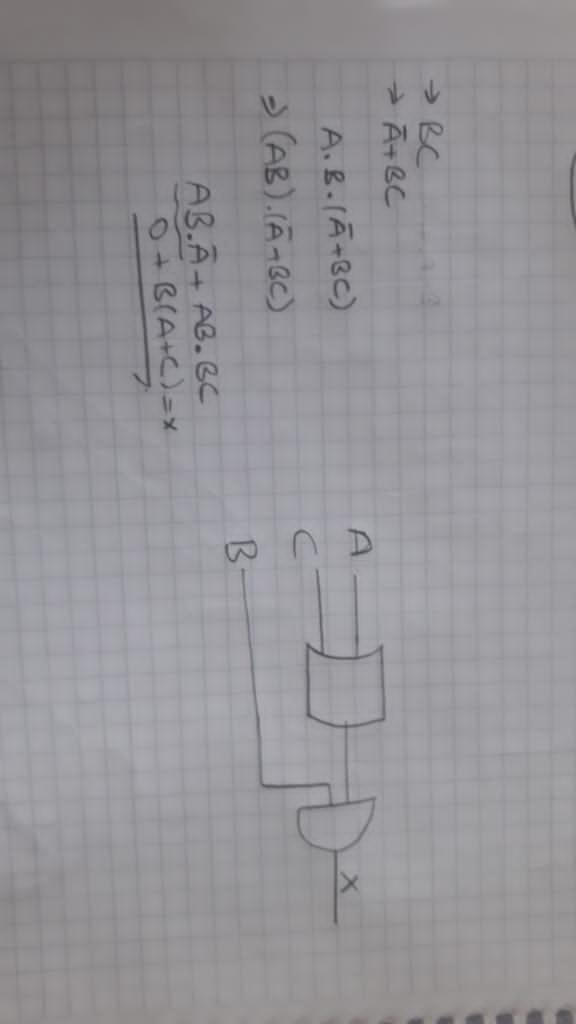 → BC
→ Ā+BC
A.B.(Ā+BC)
⇒ (AB).(Ā+BC)
AB.Ā + AB.BC
0 + B(A+C) = x
A
C
B
x